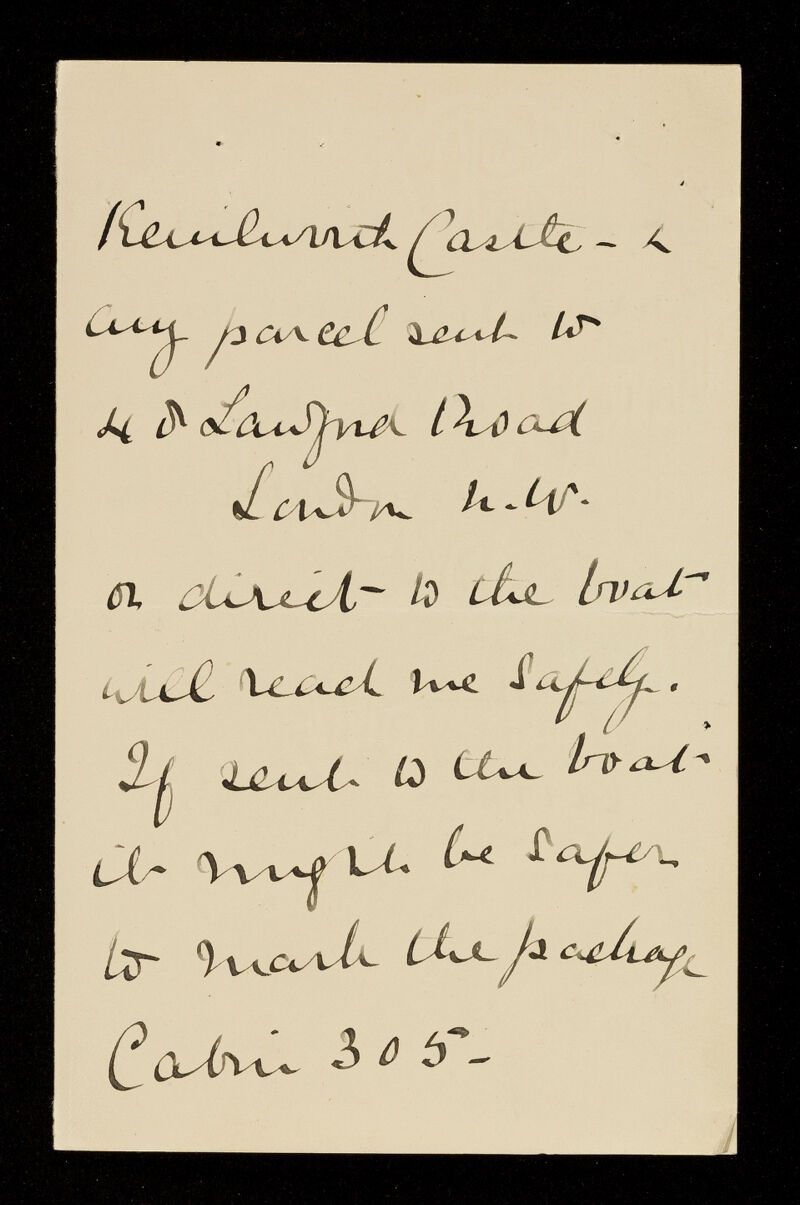 Kenilworth Castle - &
any parcel sent to
48 Lawford Road
London N.W.
or direct to the boat
will reach me safely.
If sent to the boat
it might be safer
to mark the package
Cabin 305-